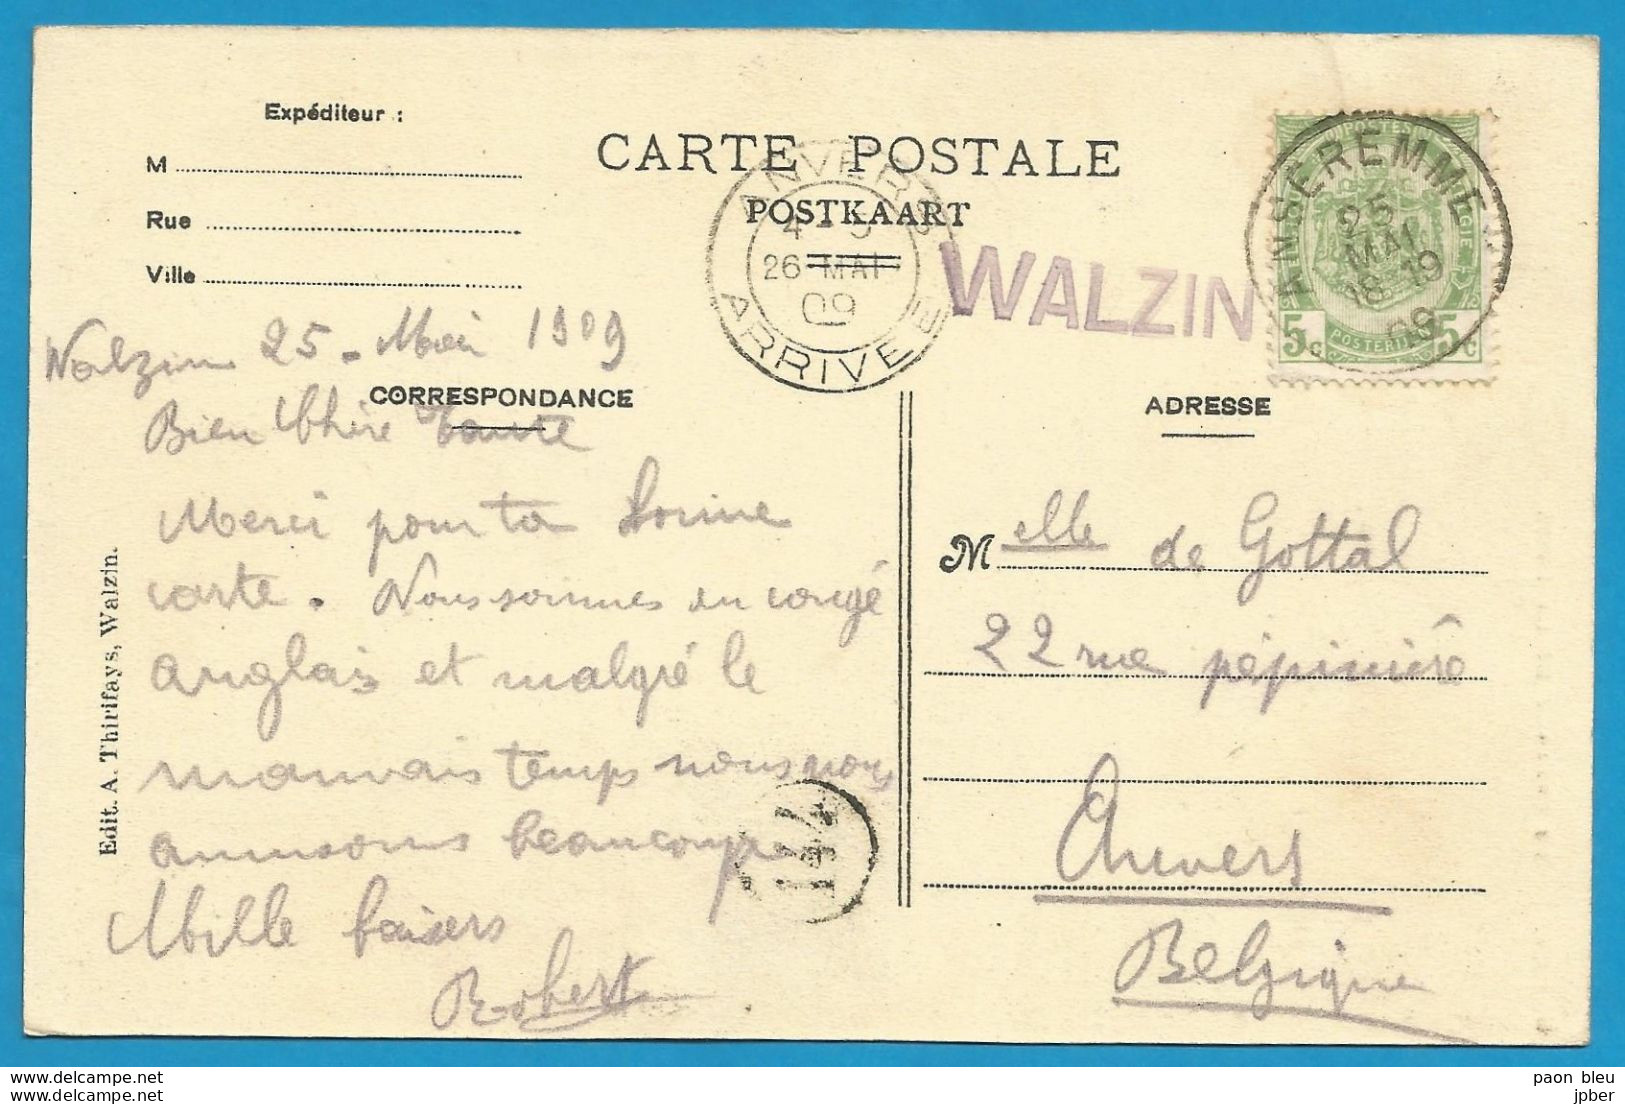 Expéditeur :
M
Rue
Ville
CARTE POSTALE
POSTKAART
ANVERS
26 MAI
09
ARRIVEE
WALZIN
ANSEREMME
25
MAI
18-19
09
5c 5c
Walzin 25 - Mai 1909
CORRESPONDANCE
ADRESSE
Bien Chère Tante
Merci pour ta bonne
carte. Nous sommes en congé
anglais et malgré le
mauvais temps nous nous
amusons beaucoup
Mille baisers
Robert
Melle de Gottal
22 rue pépinière
Anvers
Belgique
Edit. A. Thirifays, Walzin.
paon bleu
jpber